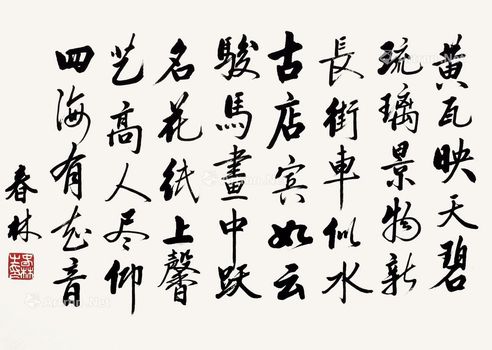 黄瓦映天碧
琉璃景物新
長街車似水
古店宾如云
駿馬畫中跃
名花纸上馨
艺高人尽仰
四海有知音
春林